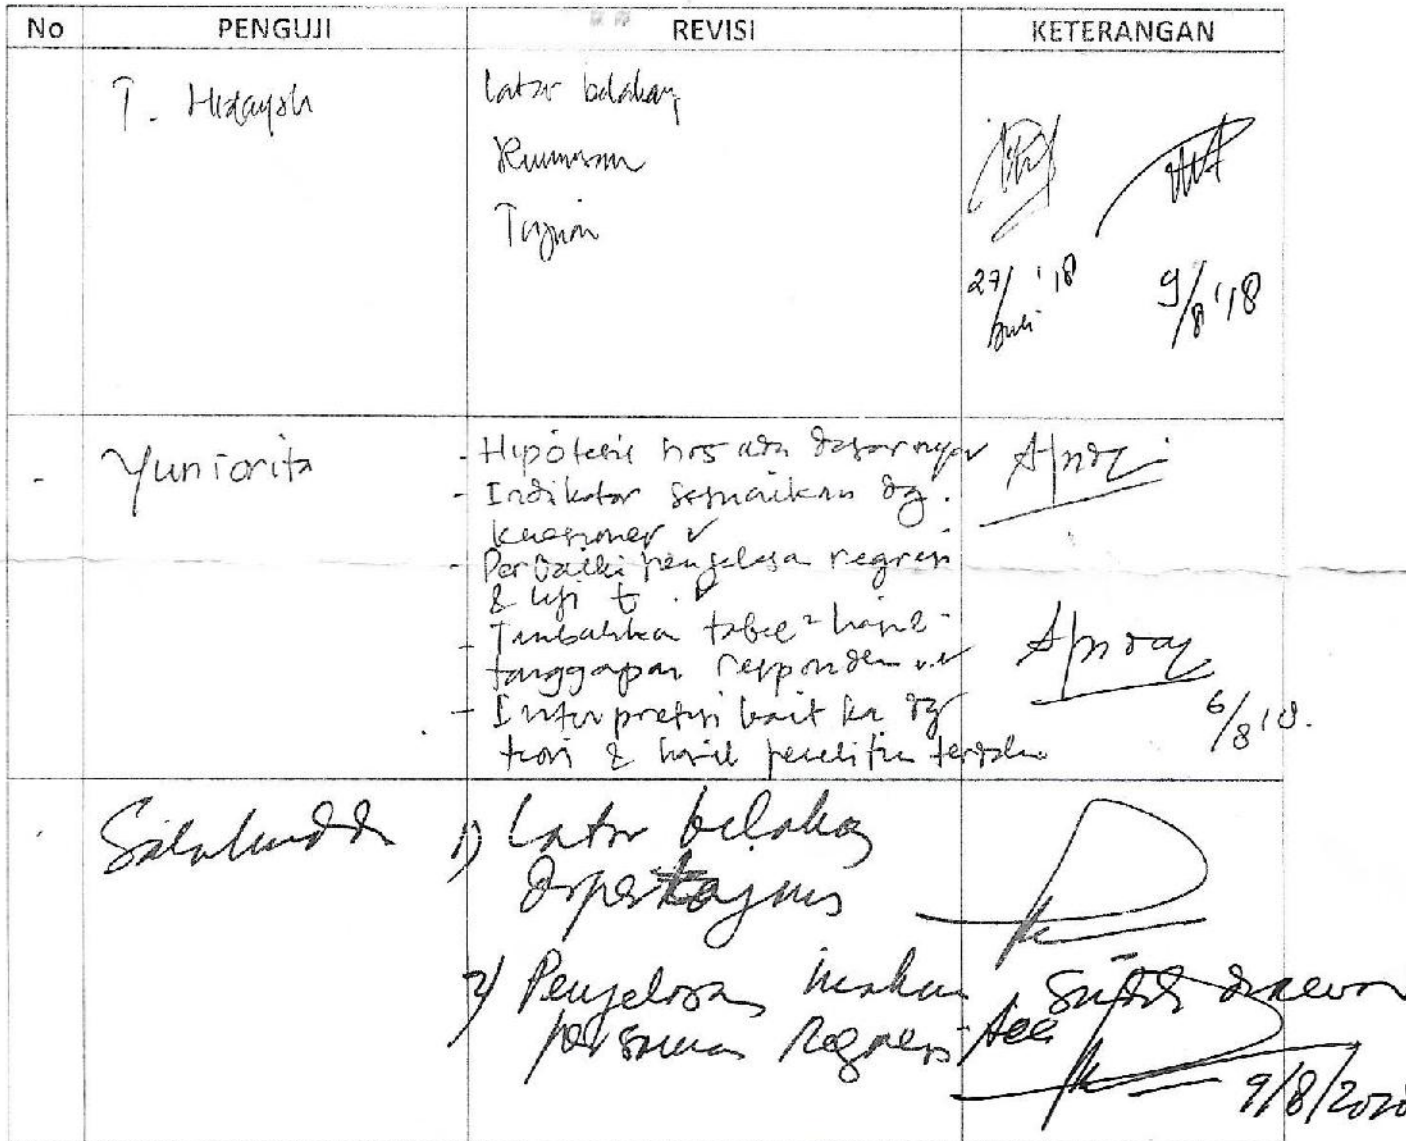 No PENGUJI REVISI KETERANGAN
T. Hidayah
Latar belakang
Rumusan
Tujuan
27/Juli '18
9/8 '18
Yuniorita
- Hipotesis hrs ada dasarnya
- Indikator sesuaikan dg.
kuesioner v
- Perbaiki penjelasan regresi
& uji t. v
- Tambahkan tabel² hasil
tanggapan responden v
- Interpretasi kait kn dg
teori & hasil penelitian terdahulu
6/8 '18.
Salahuddin
1) Latar belakang
dipertajam
2) Penjelasan
persamaan Regresi
Acc
9/8/2018